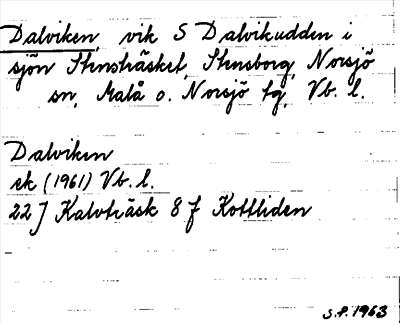 Dalviken, vik S Dalvikudden i
sjön Stensträsket, Stensborg, Norsjö
sn, Malå o. Norsjö tg, Vb. l.
Dalviken
ek (1961) Vb. l.
22 J Kalvträsk 8 f Kottliden
S.P. 1963